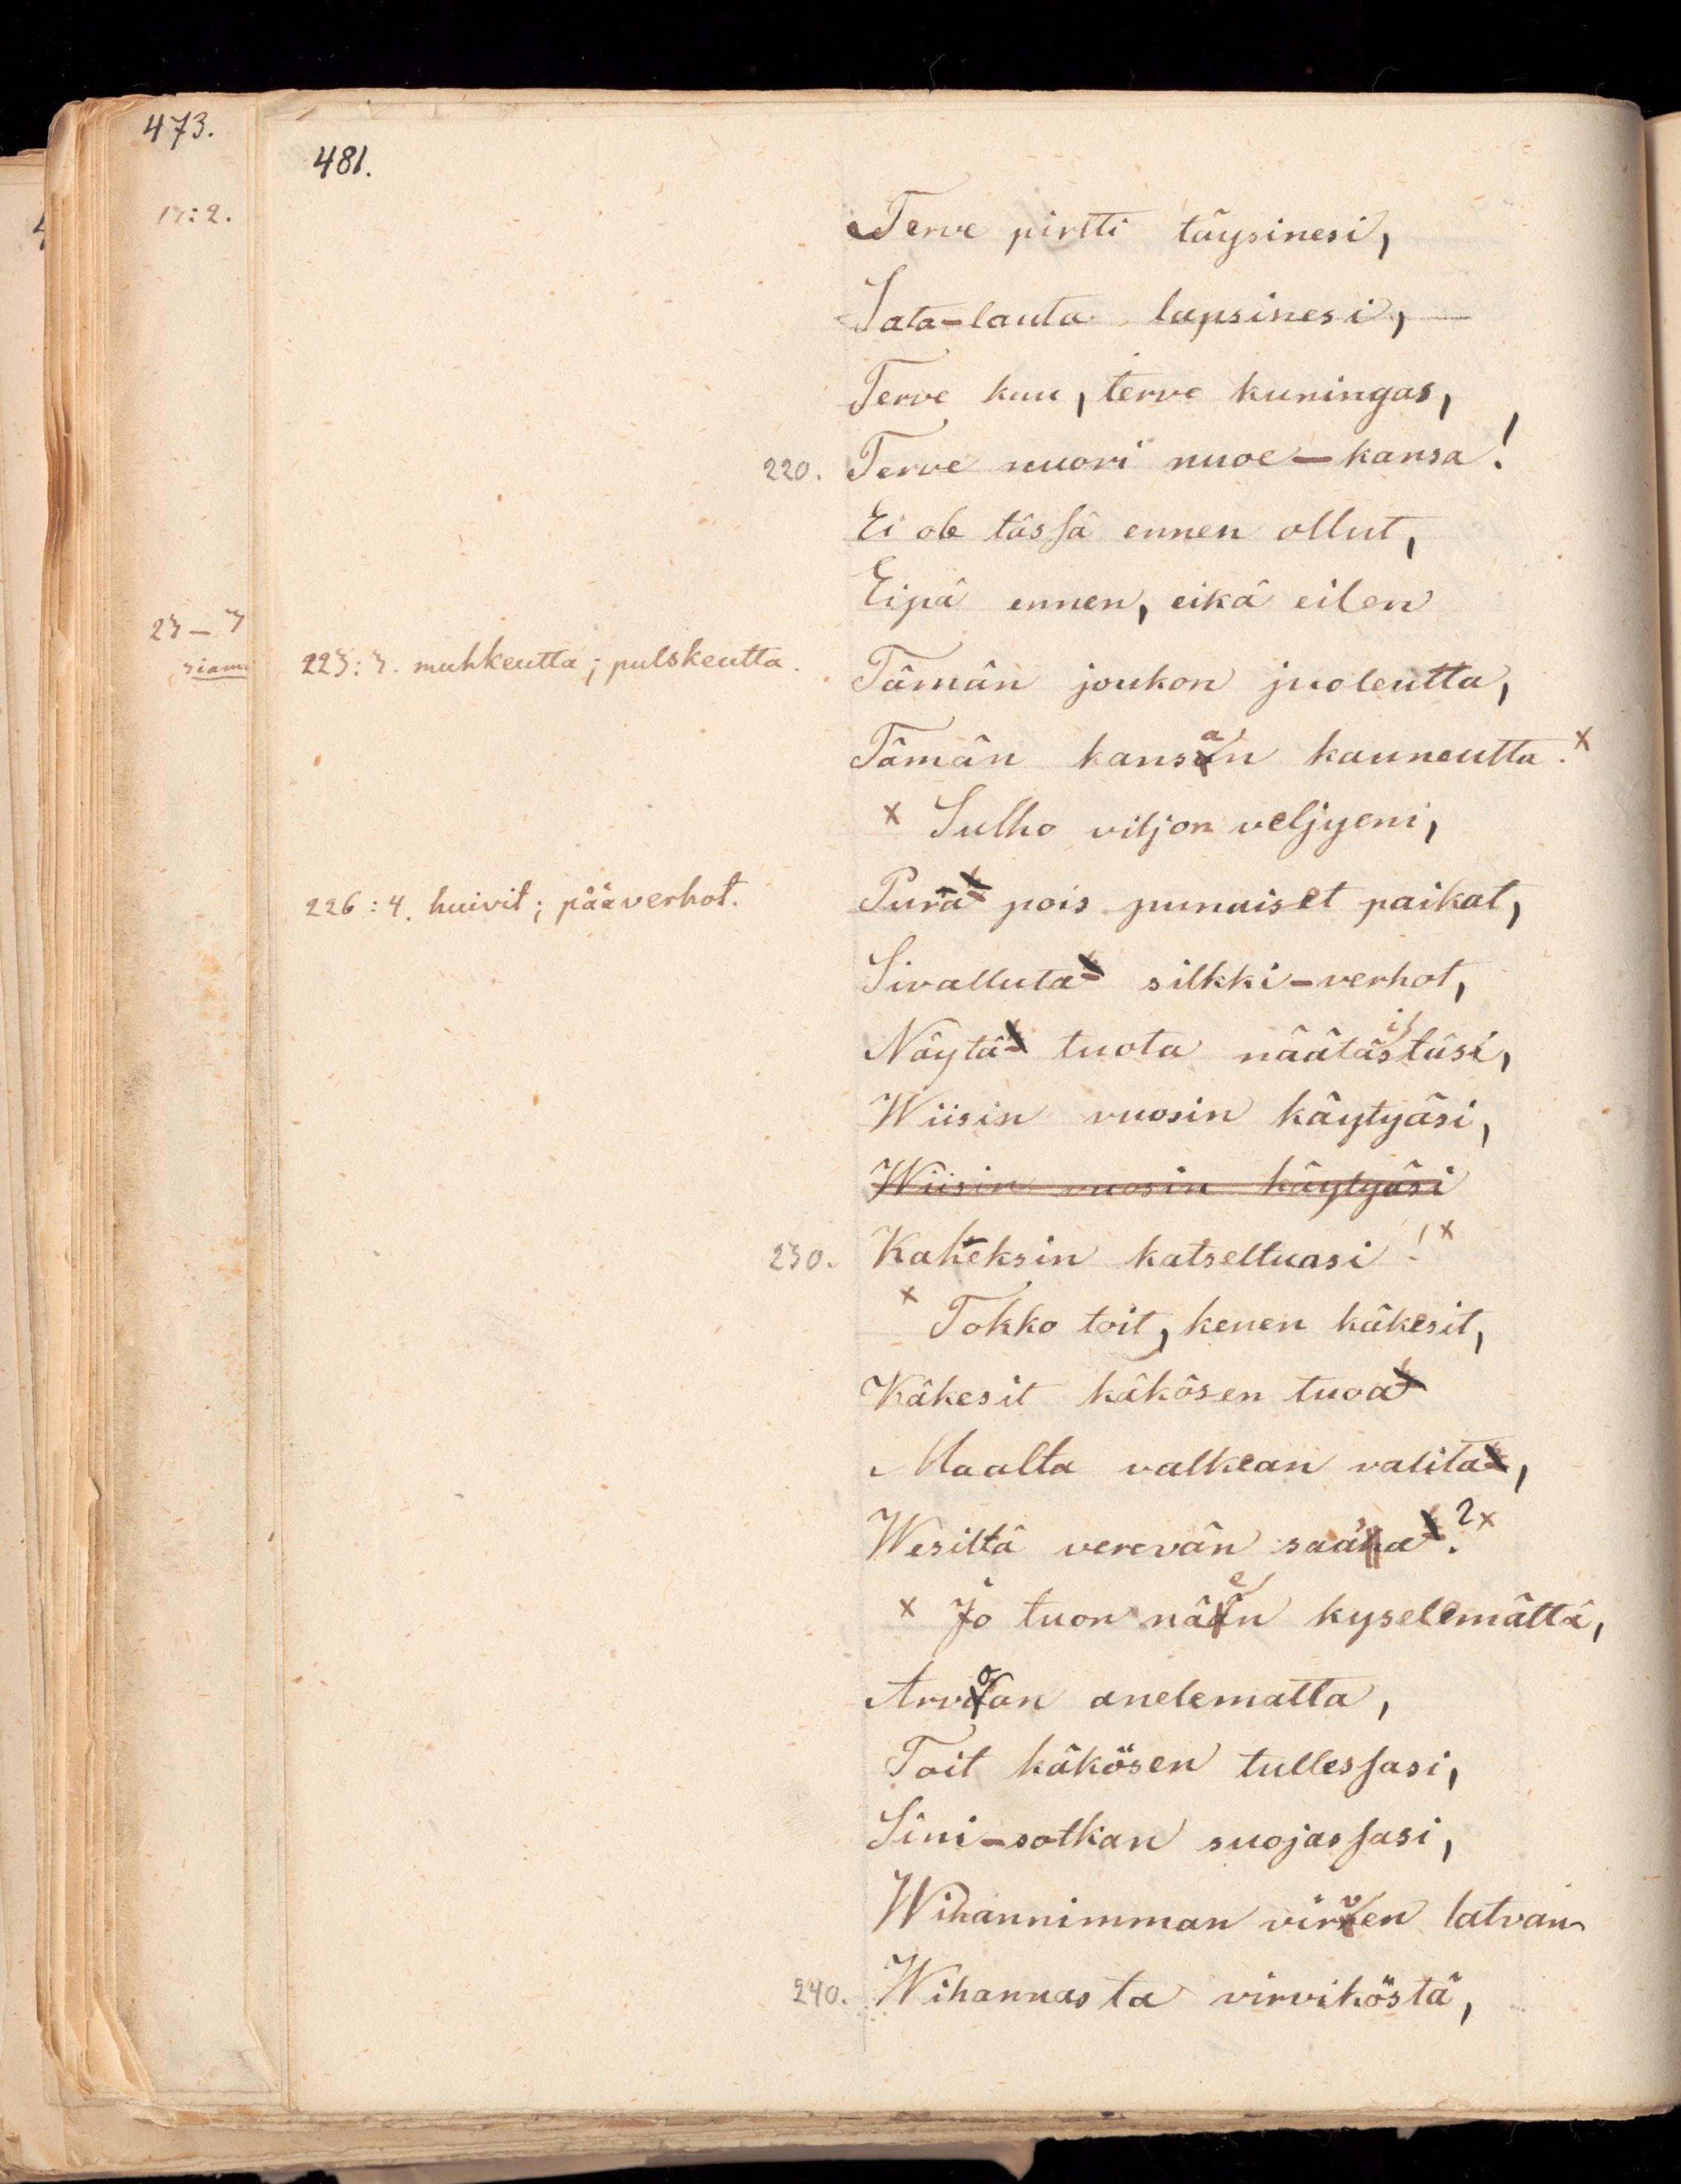 473.
17:2.
23-3
siam
481.
Terve pirtti täysinesi,
Sata-lauta lapsinesi, —
Terve kuu, terve kuningas,
220. Terve nuori nuoe-kansa!
Ei ole tässä ennen ollut,
Eipä ennen, eikä eilen
223:3. muhkeutta; pulskeutta. Tämän joukon juoleutta,
Tämän kansan kauneutta. x
x Sulho viljon veljyeni,
226:4. huivit; pääverhot. Purà pois punaiset paikat,
Sivalluta silkki-verhot,
Näytä tuota näätäistäsi,
Wiisin vuosin käytyäsi,
Wiisin vuosin käytyäsi
230. Kaheksin katseltuasi! x
x Tokko toit, kenen käkesit,
Käkesit käkösen tuoa
Maalta valkean valita,
Wesiltä verevän saaha? x
x Jo tuon näen kyselemättä,
Arvoan anelematta,
Toit käkösen tullessasi,
Sini-sotkan suojassasi,
Wihannimman virven latvan
240. Wihannasta virviköstä,